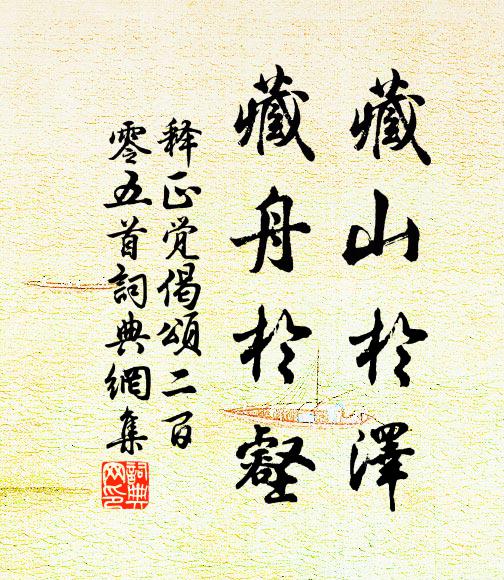 藏山於澤
藏舟於壑
释正觉偈頌二百
零五首詞典網集
詞典
网印